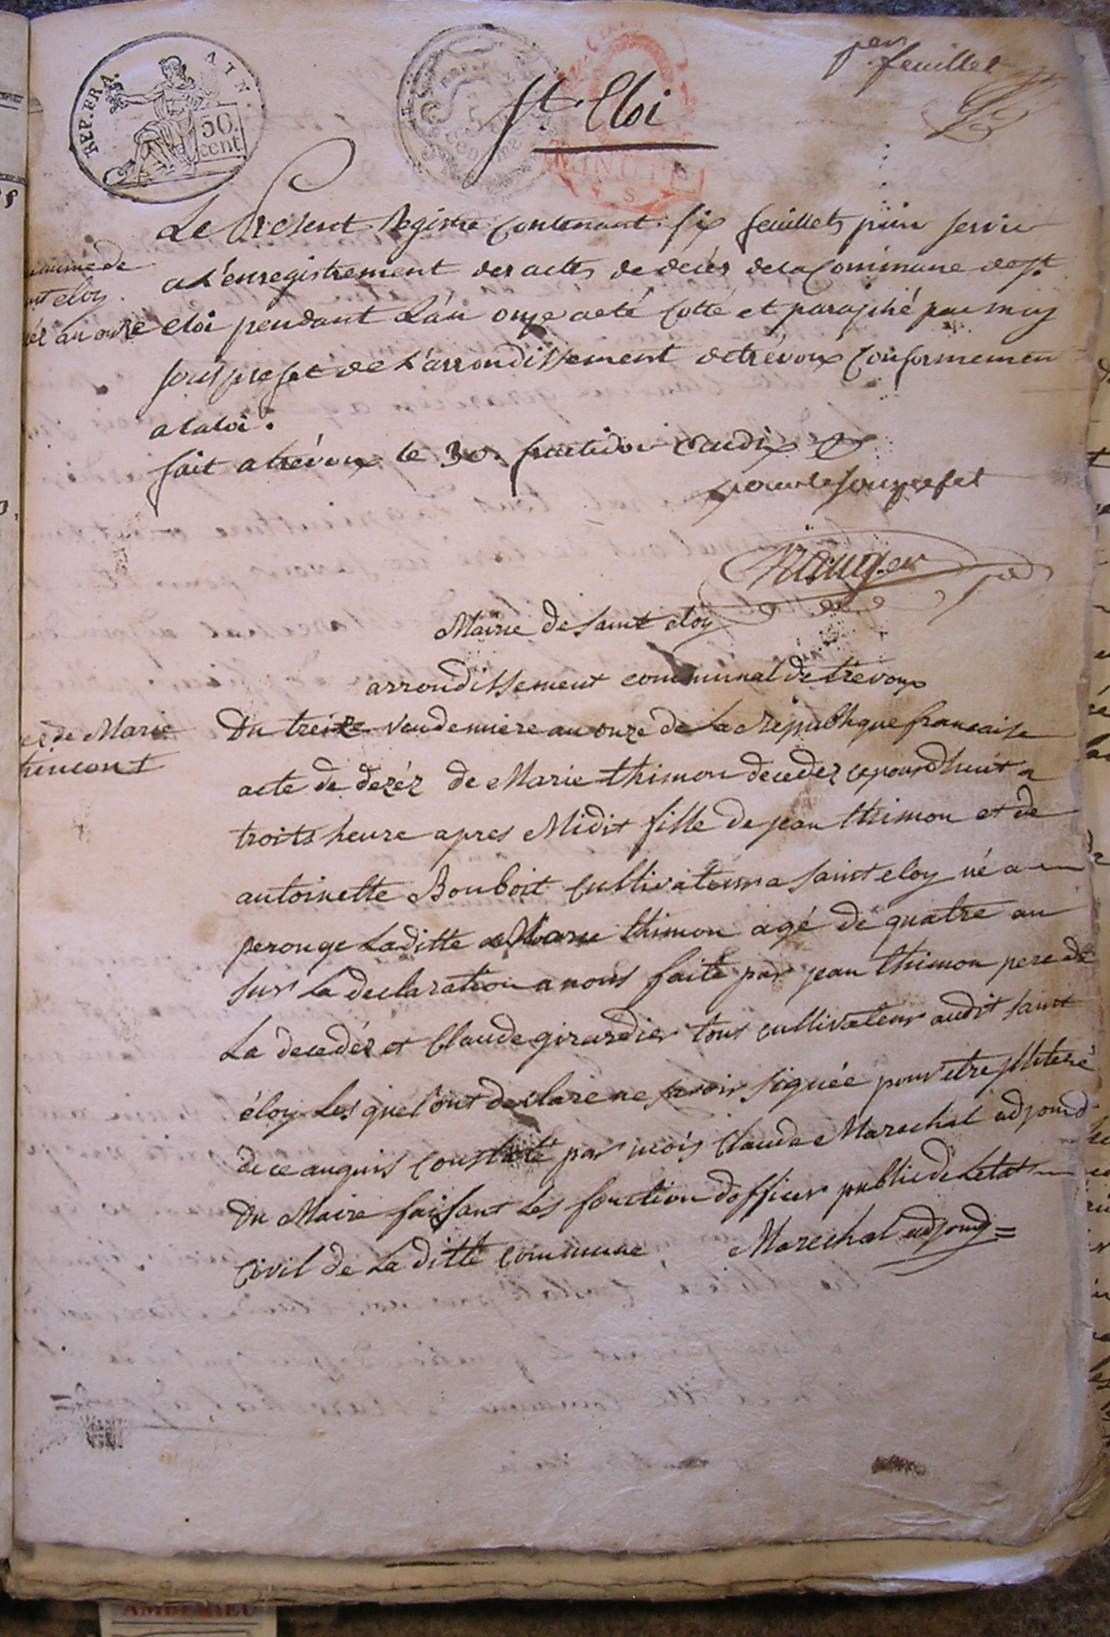 1er feuillet
REP. FRA. AIN.
50 cent
St Cloi
MINUTE
Le Present Registre Contenant six feuillets pour servir
a L'enregistrement des actes de deces de la Commune de St
Cloi pendant L'an onze a eté Cotté et paraphé par moy
sous prefet de L'arrondissement de trévoux Conformement
a la loi.
fait a trévoux le 30 fructidor an dix
pour le sous prefet
commune de
st eloy
an onze
Mairie de Saint eloy
arrondissement communal de trevoux
de Marie
Du treize vendemiere an onze de La Republique francaise
acte de dezéz de Marie thimon decedez ce jourdhuit a
troits heure apres Midit fille de jean thimon et de
antoinette Bouboit Cultivateur a Saint eloy né a
perouge Laditte Marie thimon agé de quatre an
sur La declaration a nous faite par jean thimon pere de
La decedéz et Claude girardier tous cultivateur audit saint
éloy Les quel ont declare ne savoir signée pour etre
de ce anquis Constaté par mois Claude Marechal adjoind
Du Maire faisant Les fonction dofficier public de Letat
Civil de Laditte Commune Marechal adjoind
AMBERIEU